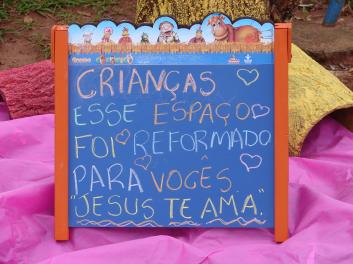 CRIANÇAS
ESSE ESPAÇO
FOI REFORMADO
PARA VOCÊS
"JESUS TE AMA."